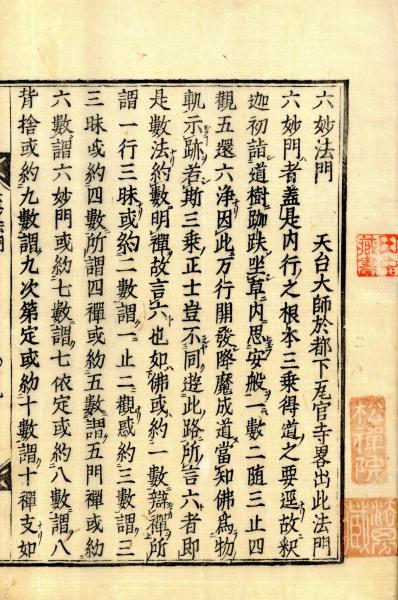 六妙法門　天台大師於都下瓦官寺畧出此法門
六妙門者盖是内行之根本三乗得道之要逕故釈
迦初詣道樹跏趺坐草内思安般一數二随三止四
觀五還六浄因此万行開發降魔成道當知佛為物
軌示跡若斯三乗正士豈不同遊此路所言六者即
是數法約數明禪故言六也如佛或約一數辯禪所
謂一行三昧或約二數謂一止二觀或約三數謂三
三昧或約四數所謂四禪或約五數謂五門禪或約
六數謂六妙門或約七數謂七依定或約八數謂八
背捨或約九數謂九次第定或約十數謂十禪支如
松禪院